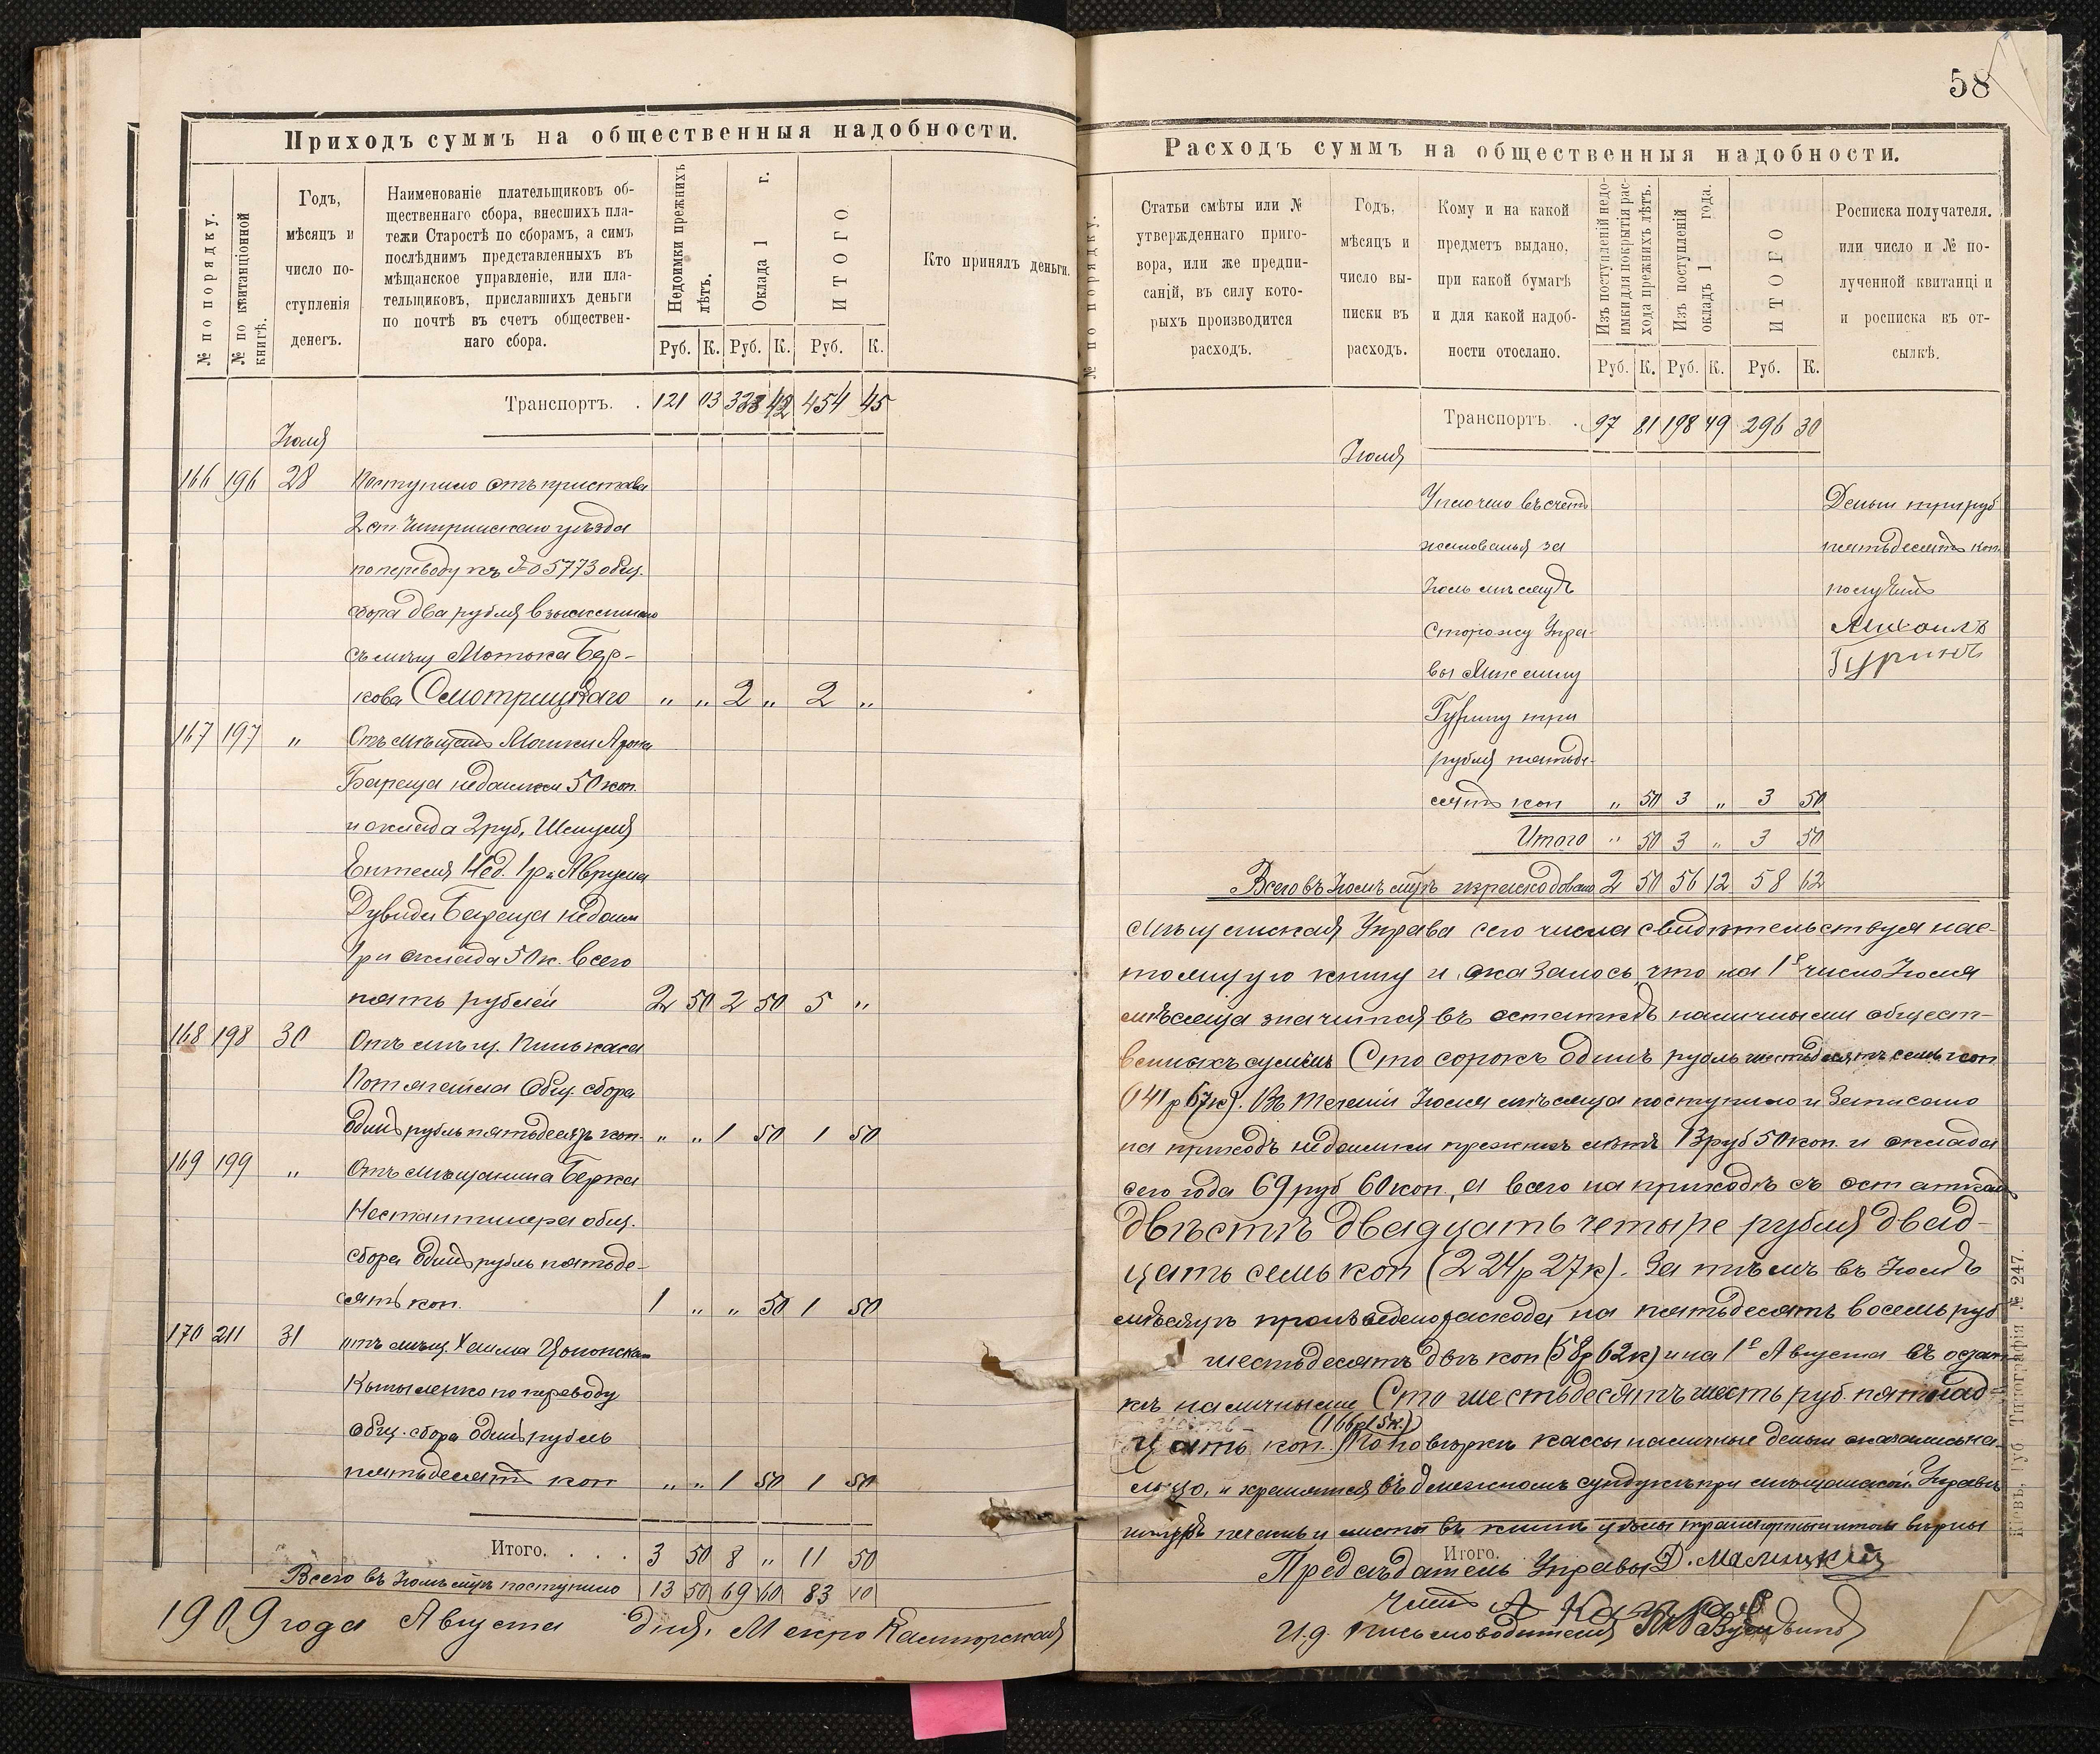 Приходъ суммъ на общественныя надобности.
№ по порядку.
№ по квитанціонной книгѣ.
Годъ,
мѣсяцъ и
число по-
ступленія
денегъ.
Наименованіе плательщиковъ об-
щественнаго сбора, внесшихъ пла-
тежи Старостѣ по сборамъ, а симъ
послѣднимъ представленныхъ въ
мѣщанское управленіе, или пла-
тельщиковъ, приславшихъ деньги
по почтѣ въ счетъ обществен-
наго сбора.
Недоимки прежнихъ
лѣтъ.
Оклада 1 г.
ИТОГО
Кто принялъ деньги.
Руб. К. Руб. К. Руб. К.
Транспортъ. . 121 03 333 42 454 45
Іюля
166 196 28 Поступило отъ пристава
2 ст. уѣзда
по переводу № 05773 общ.
сбора два рубля взысканнаго
съ мѣщ. Мотока Бер-
кова Смотрицкаго " " 2 " 2 "
167 197 " Отъ мѣщанъ Мошки Арона
Береща недоимки 50 коп.
и оклада 2 руб, Шмуля
Нед. 1 р и Аврума
Дувида Береща недоим
1 р и оклада 50 к. всего
пять рублей 2 50 2 50 5 "
168 198 30 Отъ мѣщ. Пинькаса
общ. сбора
одинъ рубль пятьдесятъ коп. " " 1 50 1 50
169 199 " Отъ мѣщанина Берка
общ.
сбора одинъ рубль пятьде-
сятъ коп. 1 " " 50 1 50
170 211 31 отъ мѣщ. Хаима
по переводу
общ. сбора одинъ рубль
пятьдесятъ коп " " 1 50 1 50
Итого. . . . 3 50 8 " 11 50
Всего въ Іюлѣ мцѣ поступило 13 50 69 60 83 10
1909 года Августа дня, Мѣстро
58
Расходъ суммъ на общественныя надобности.
№ по порядку.
Статьи смѣты или №
утвержденнаго приго-
вора, или же предпи-
саній, въ силу кото-
рыхъ производится
расходъ.
Годъ,
мѣсяцъ и
число вы-
писки въ
расходъ.
Кому и на какой
предметъ выдано,
при какой бумагѣ
и для какой надоб-
ности отослано.
Изъ поступленій недо-
имки для покрытія рас-
хода прежнихъ лѣтъ.
Изъ поступленій
окладъ 1 года.
ИТОГО
Росписка получателя,
или число и № по-
лученной квитанціи
и росписка въ от-
сылкѣ.
Руб. К. Руб. К. Руб. К.
Транспортъ. . 97 81 198 49 296 30
Іюля
Уплочено въ счетъ
жалованья за
Іюль мѣсяцъ
Сторожу Упра-
вы Михаилу
Гурину три
рубля пятьде-
сятъ коп " 50 3 " 3 50
Деньги три руб
пятьдесятъ коп.
получилъ
Михаилъ
Гуринъ
Итого " 50 3 " 3 50
Всего въ Іюлѣ мцѣ израсходовано 2 50 56 12 58 62
Мѣщанская Управа сего числа свидѣтельствуя нас-
тоящую книгу и оказалось, что на 1е число Іюля
мѣсяца значится въ остаткѣ наличными общест-
венныхъ суммъ Сто сорокъ одинъ рубль шестьдесятъ семь коп
(141 р 67 к). Въ теченіи Іюля мѣсяца поступило и записано
на приходъ недоимки прежнихъ лѣтъ 13 руб 50 коп. и оклада
сего года 69 руб 60 коп., а всего на приходѣ съ остаткомъ
двѣсти двадцать четыре рубля двад-
цать семь коп (224 р 27 к). За тѣмъ въ Іюлѣ
мѣсяцѣ произведено расхода на пятьдесятъ восемь руб
шестьдесятъ двѣ коп (58 р 62 к) и на 1е Августа въ остат
кѣ наличными Сто шестьдесятъ шесть руб. пятнад-
(166 р 15 к.)
цать коп. По повѣркѣ кассы наличные деньги оказались на
лицо, и хранятся въ денежномъ сундукѣ при мѣщанской Управѣ
печать и листы въ книгѣ цѣлы транспорты и итоги вѣрны
Итого.
Предсѣдатель Управы Д. Малицкій
Членъ А
И.д. письмоводителя
Кіевъ, Губ Типографія № 247.